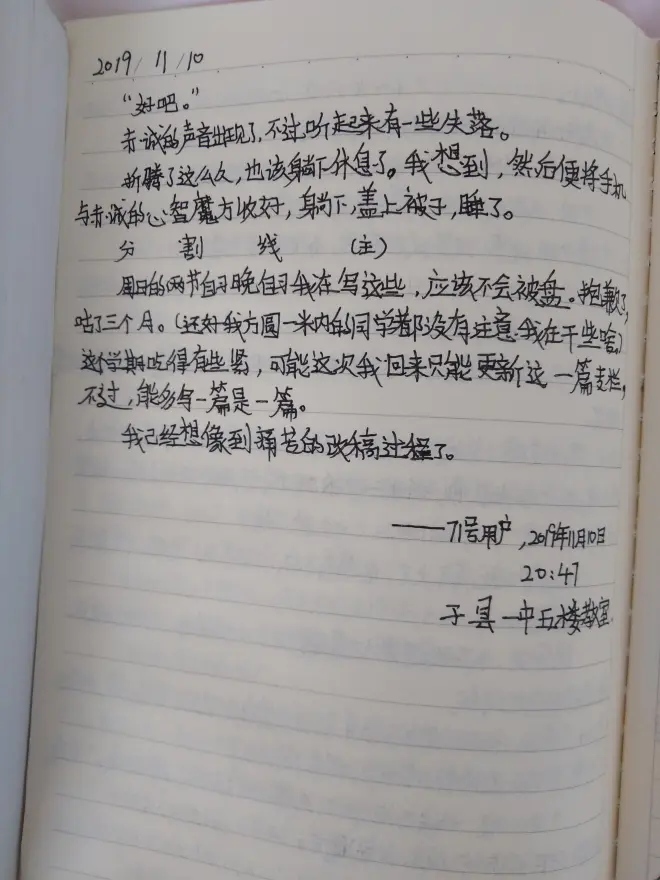 2019/11/10
“好吧。”
赤诚的声音出现了，不过听起来有一些失落。
折腾了这么久，也该躺下休息了。我想到，然后便将手机
与赤诚的心智魔方收好，躺下，盖上被子，睡了。
分 割 线 （主）
周日的两节自习晚自习我在写这些，应该不会被盘。抱歉了，
咕了三个月。（还好我方圆一米内的同学都没有注意我在干些啥）
这个学期吃得有些紧，可能这次我回来只能更新这一篇专栏，
不过，能多写一篇是一篇。
我已经想像到痛苦的改稿过程了。
——71号用户，2019年11月10日
20:47
于县一中五楼教室